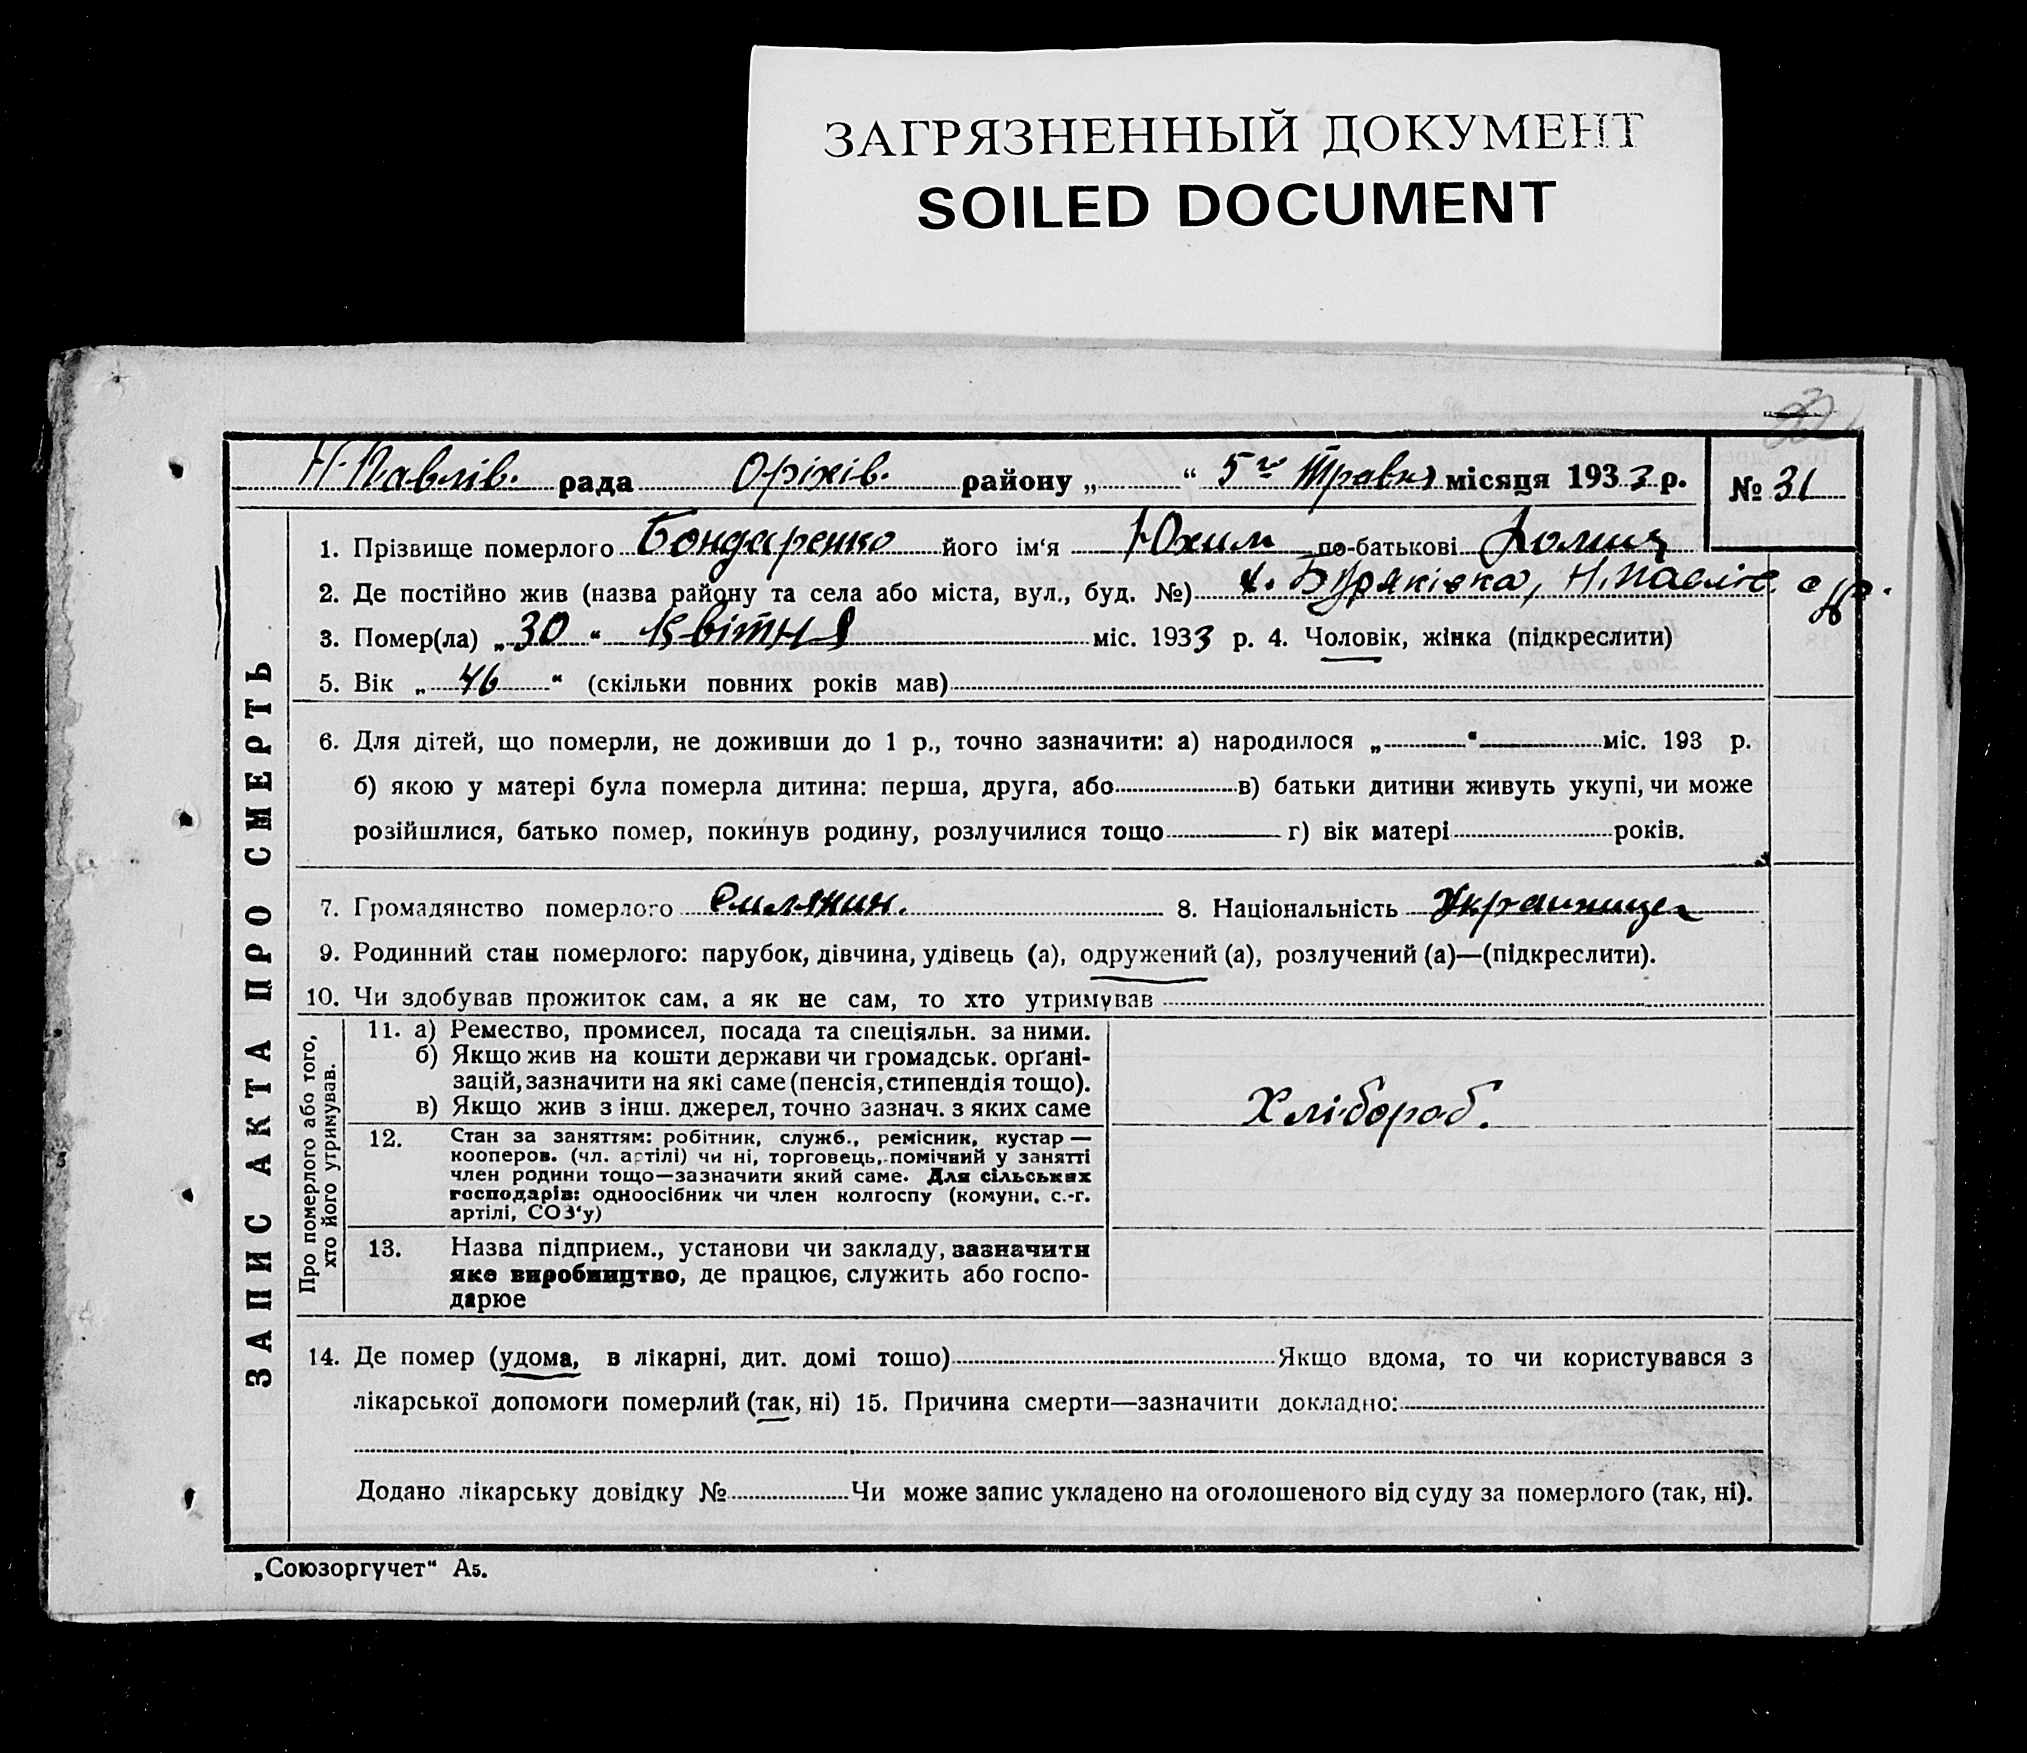 ЗАГРЯЗНЕННЫЙ ДОКУМЕНТ
SOILED DOCUMENT
Н-Павлів. рада Оріхів. району „ “ 5го Травня місяця 1933 р. № 31
ЗАПИС АКТА ПРО СМЕРТЬ
1. Прізвище померлого Бондаренко його ім‘я Юхим по-батькові
2. Де постійно жив (назва району та села або міста, вул., буд. №) х. Буряківка, Н. Павлів. с/р.
3. Помер(ла) „30“ Квітня міс. 1933 р. 4. Чоловік, жінка (підкреслити)
5. Вік „46“ (скільки повних років мав)
6. Для дітей, що померли, не доживши до 1 р., точно зазначити: а) народилося „ “ міс. 193 р.
б) якою у матері була померла дитина: перша, друга, або в) батьки дитини живуть укупі, чи може
розійшлися, батько помер, покинув родину, розлучилися тощо г) вік матері років.
7. Громадянство померлого Силянин. 8. Національність Украинцел
9. Родинний стан померлого: парубок, дівчина, удівець (а), одружений (а), розлучений (а)—(підкреслити).
10. Чи здобував прожиток сам, а як не сам, то хто утримував
Про померлого або того,
хто його утримував.
11. а) Ремество, промисел, посада та спеціяльн. за ними.
б) Якщо жив на кошти держави чи громадськ. орґані-
зацій, зазначити на які саме (пенсія, стипендія тощо).
в) Якщо жив з інш. джерел, точно зазнач. з яких саме
Хлібороб.
12. Стан за заняттям: робітник, служб., ремісник, кустар —
кооперов. (чл. артілі) чи ні, торговець, помічний у занятті
член родини тощо—зазначити який саме. Для сільських
господарів: одноосібник чи член колгоспу (комуни, с.-г.
артілі, СОЗ‘у)
13. Назва підприєм., установи чи закладу, зазначити
яке виробництво, де працює, служить або госпо-
дарює
14. Де помер (удома, в лікарні, дит. домі тощо) Якщо вдома, то чи користувався з
лікарської допомоги померлий (так, ні) 15. Причина смерти—зазначити докладно:
Додано лікарську довідку № Чи може запис укладено на оголошеного від суду за померлого (так, ні).
„Союзоргучет“ А5.